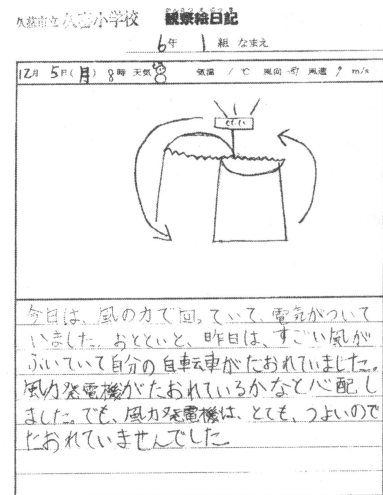 久慈市立久喜小学校 観察絵日記
6年 1組 なまえ
12月 5日(月) 8時 天気 気温 1℃ 風向 風速 9 m/s
今日は、風の力で回っていて、電気がついて
いました。おとといと、昨日は、すごい風が
ふいていて自分の自転車がたおれていました。
風力発電機がたおれているかなと心配し
ました。でも、風力発電機は、とても、つよいので
たおれていませんでした。